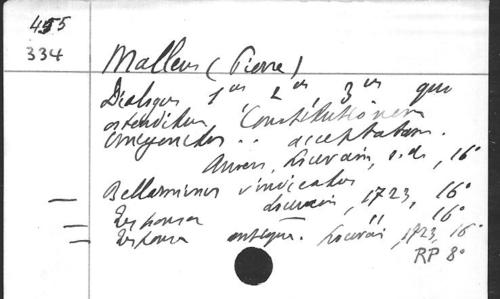 455
334
Malleus (Pierre)
Dialogus 1us 2us 3us quo
ostenditur Constitutionem
Unigenitus .. acceptatam.
Anvers, Louvain, s.d., 16°
Bellarminus vindicatus
Louvain, 1723, 16°
Responsa 16°
Louvain, 1723, 16°
RP 8°